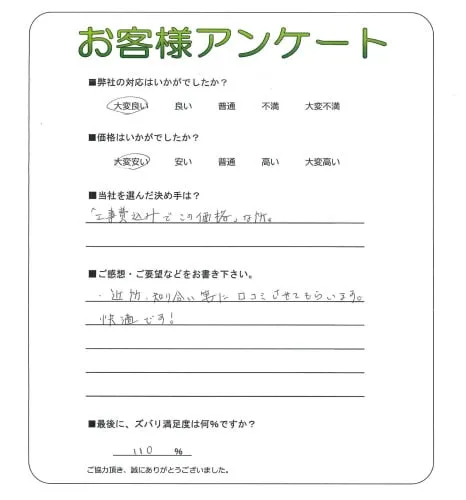 お客様アンケート
■弊社の対応はいかがでしたか？
大変良い 良い 普通 不満 大変不満
■価格はいかがでしたか？
大変安い 安い 普通 高い 大変高い
■当社を選んだ決め手は？
「工事費込みでこの価格」な所。
■ご感想・ご要望などをお書き下さい。
・近所、知り合い等に口コミさせてもらいます。
快適です！
■最後に、ズバリ満足度は何%ですか？
110 %
ご協力頂き、誠にありがとうございました。